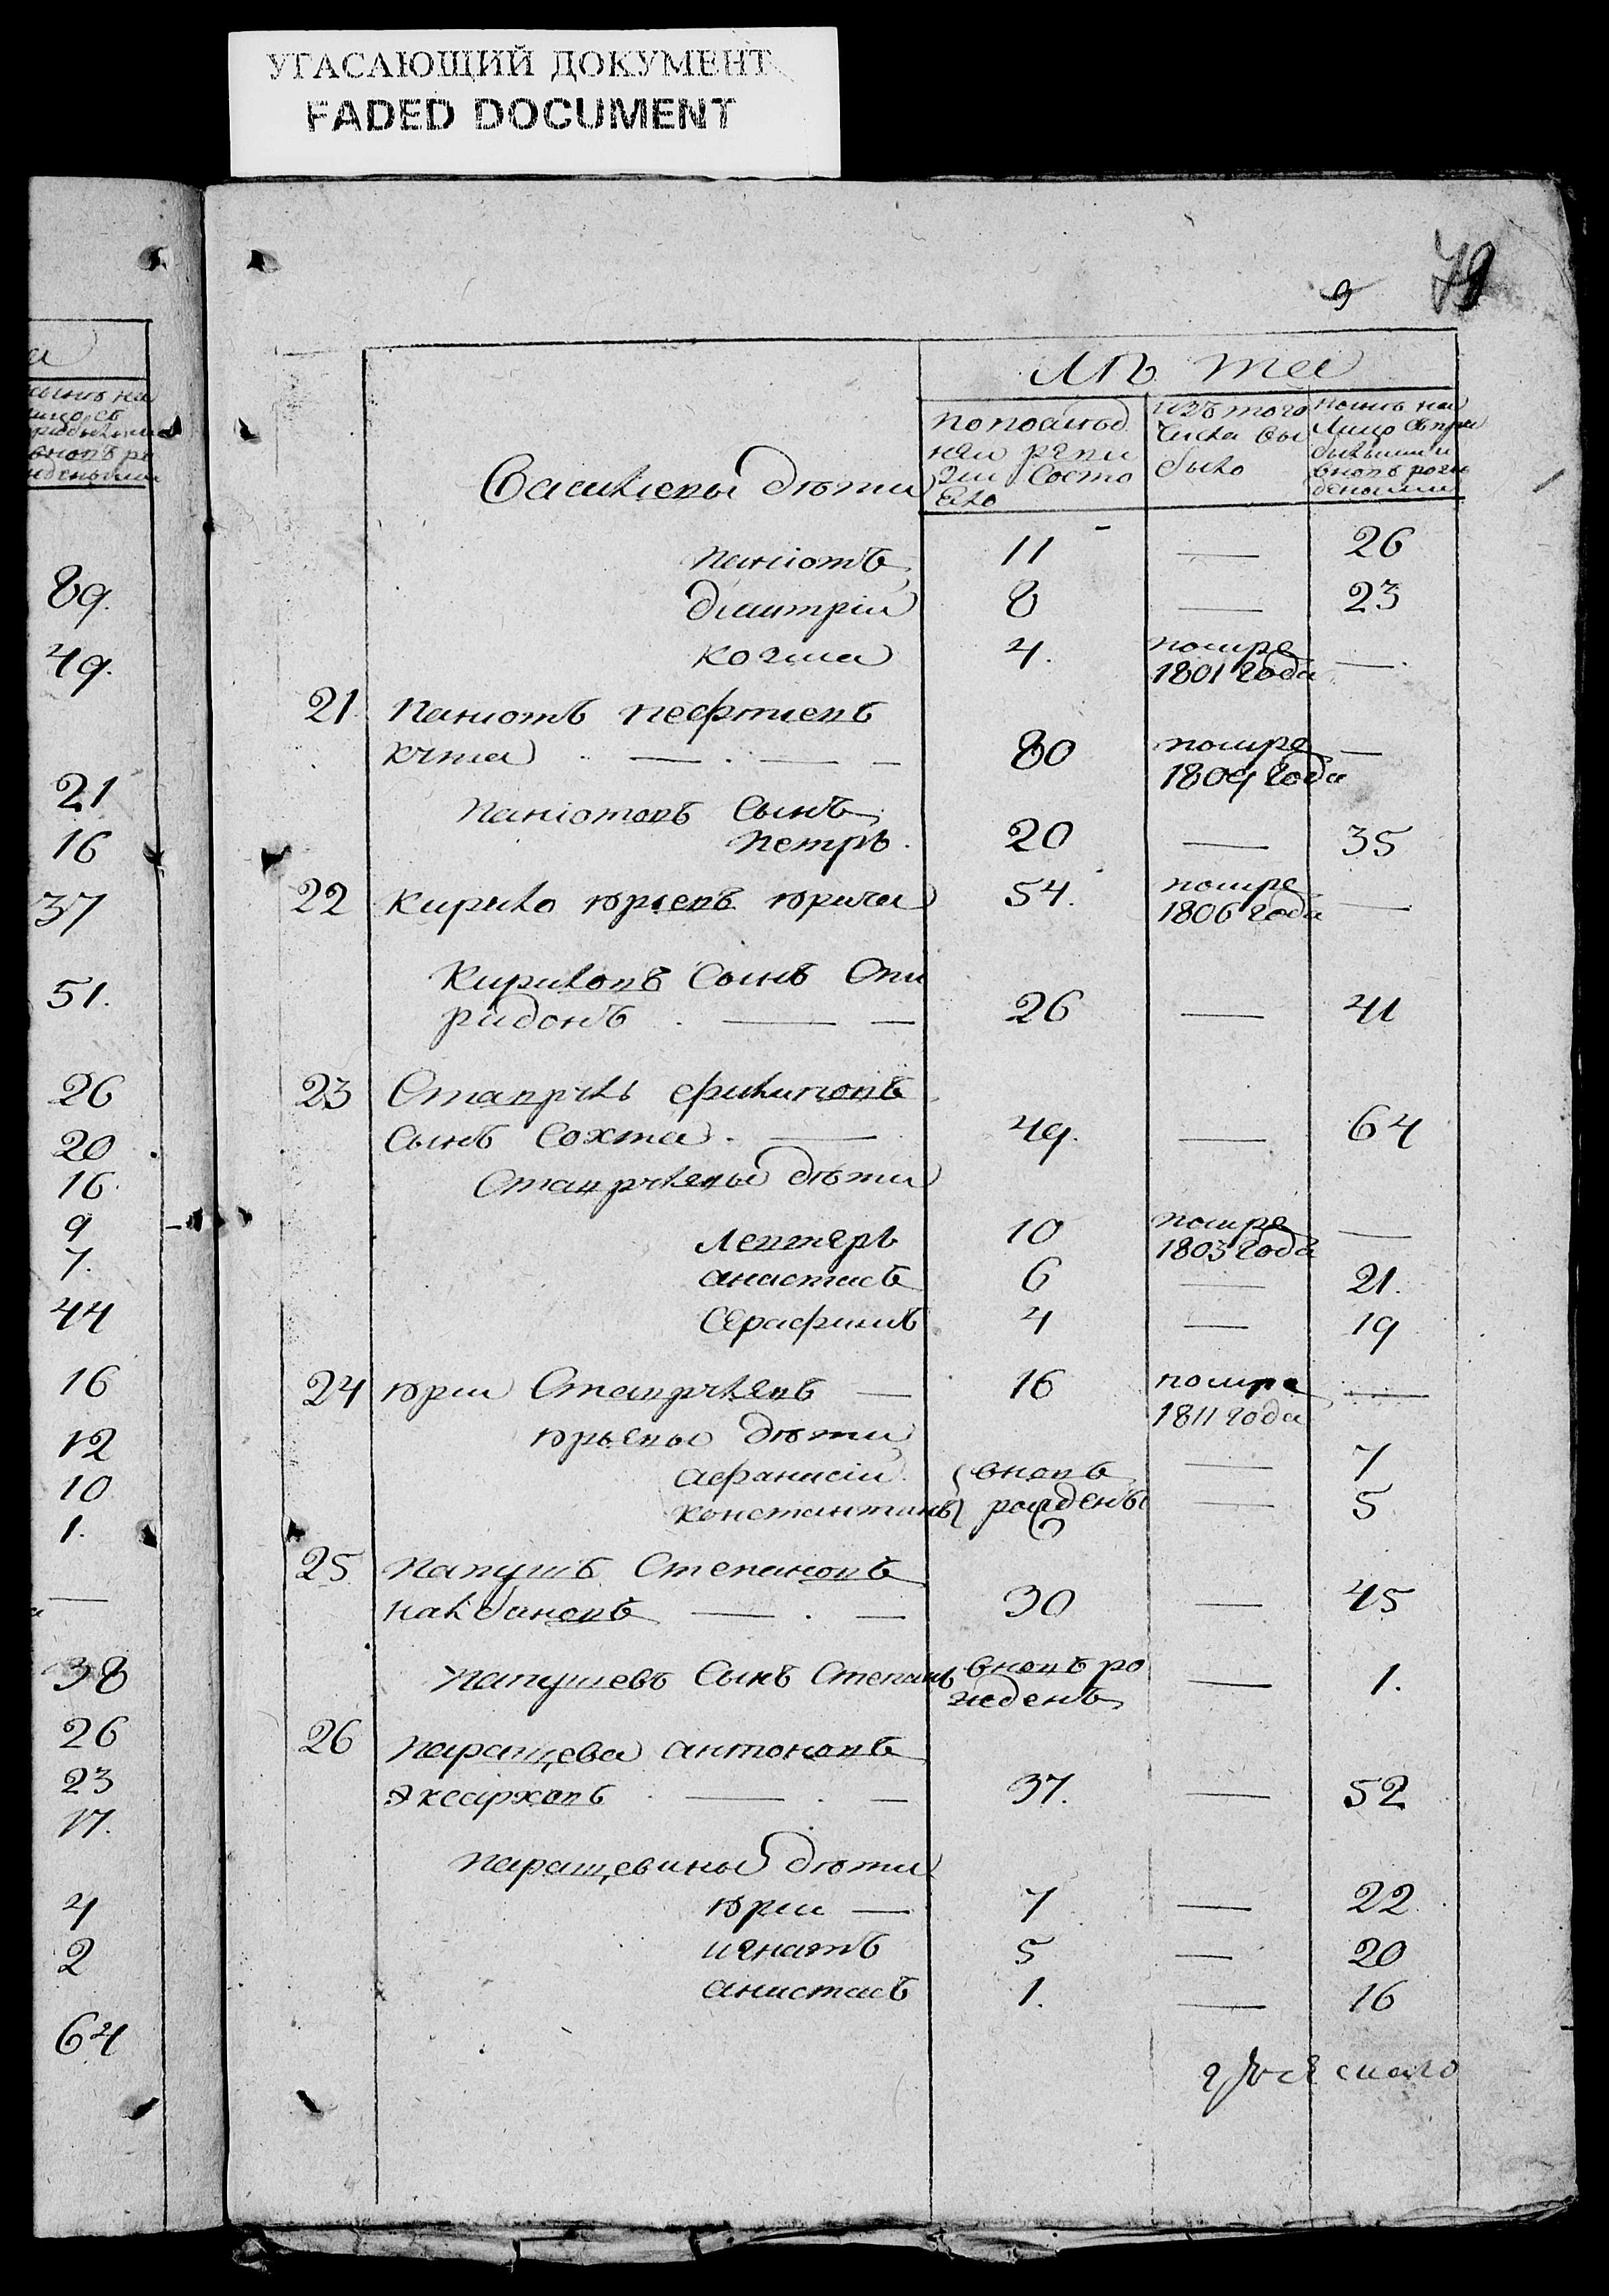 УГАСАЮЩИЙ ДОКУМЕНТ
FADED DOCUMENT
79
9
Лѣта
по послѣд
ней реви
зіи состо
яло
изъ того
числа вы
было
нынѣ на
лицо съ при
бывшими и
вновь рож
денными
Васильевы дѣти
Паніотъ 11 — 26
Дімитрій 8 — 23
Козма 4. помре —.
1801 года
21. Паніотъ Нефтіевъ
80 помре —
1809 года
Паніотовъ сынъ
Петръ. 20 — 35
22 Кирило Юрьевъ 54. помре —
1806 года
Кириловъ сынъ Спи
ридонъ . — — 26 — 41
23 Ставрулъ Филипповъ
сынъ Сохта. — 49. — 64
Ставрулевы дѣти
Левтеръ 10 помре —
1803 года
Анастасъ 6 — 21.
Серафимъ 4 — 19
24 Юрий Ставрулевъ — 16 помре —
1811 года
Юрьевы дѣти
Афанасій вновь — 7
Константинъ рождены — 5
25 Папушъ Степановъ
Налбановъ — . — 30 — 45
Папушевъ сынъ Степанъ вновь ро — 1.
жденъ
26 Паращева Антоновъ
Эксарховъ . — . — 37. — 52
Паращевины дѣти
Юрий — 7 — 22
Игнатъ 5 — 20
Анастасъ 1. — 16
89.
49.
21
16
37
51.
26
20
16.
9
7.
44
16
12
10
1.
—
38
26
23
17.
4
2
64